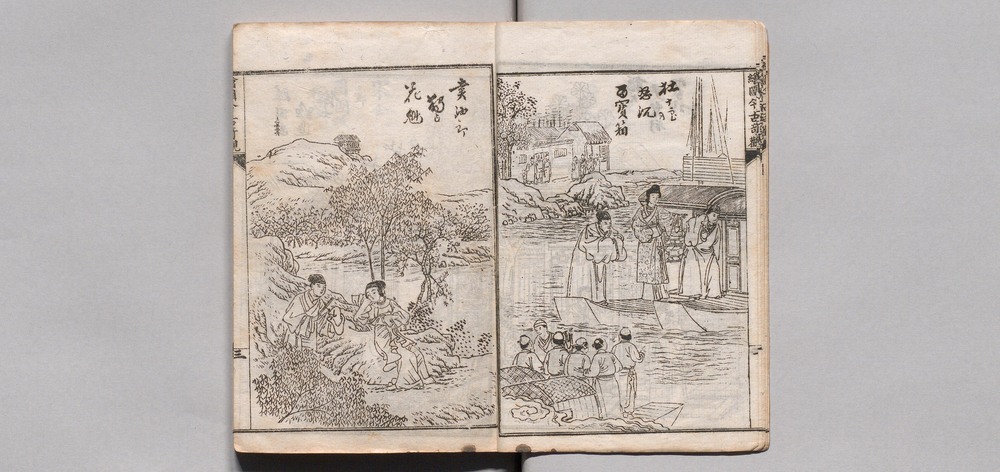 繪圖今古奇觀
杜十娘
怒沉
百寶箱
賣油郎
獨占
花魁
三